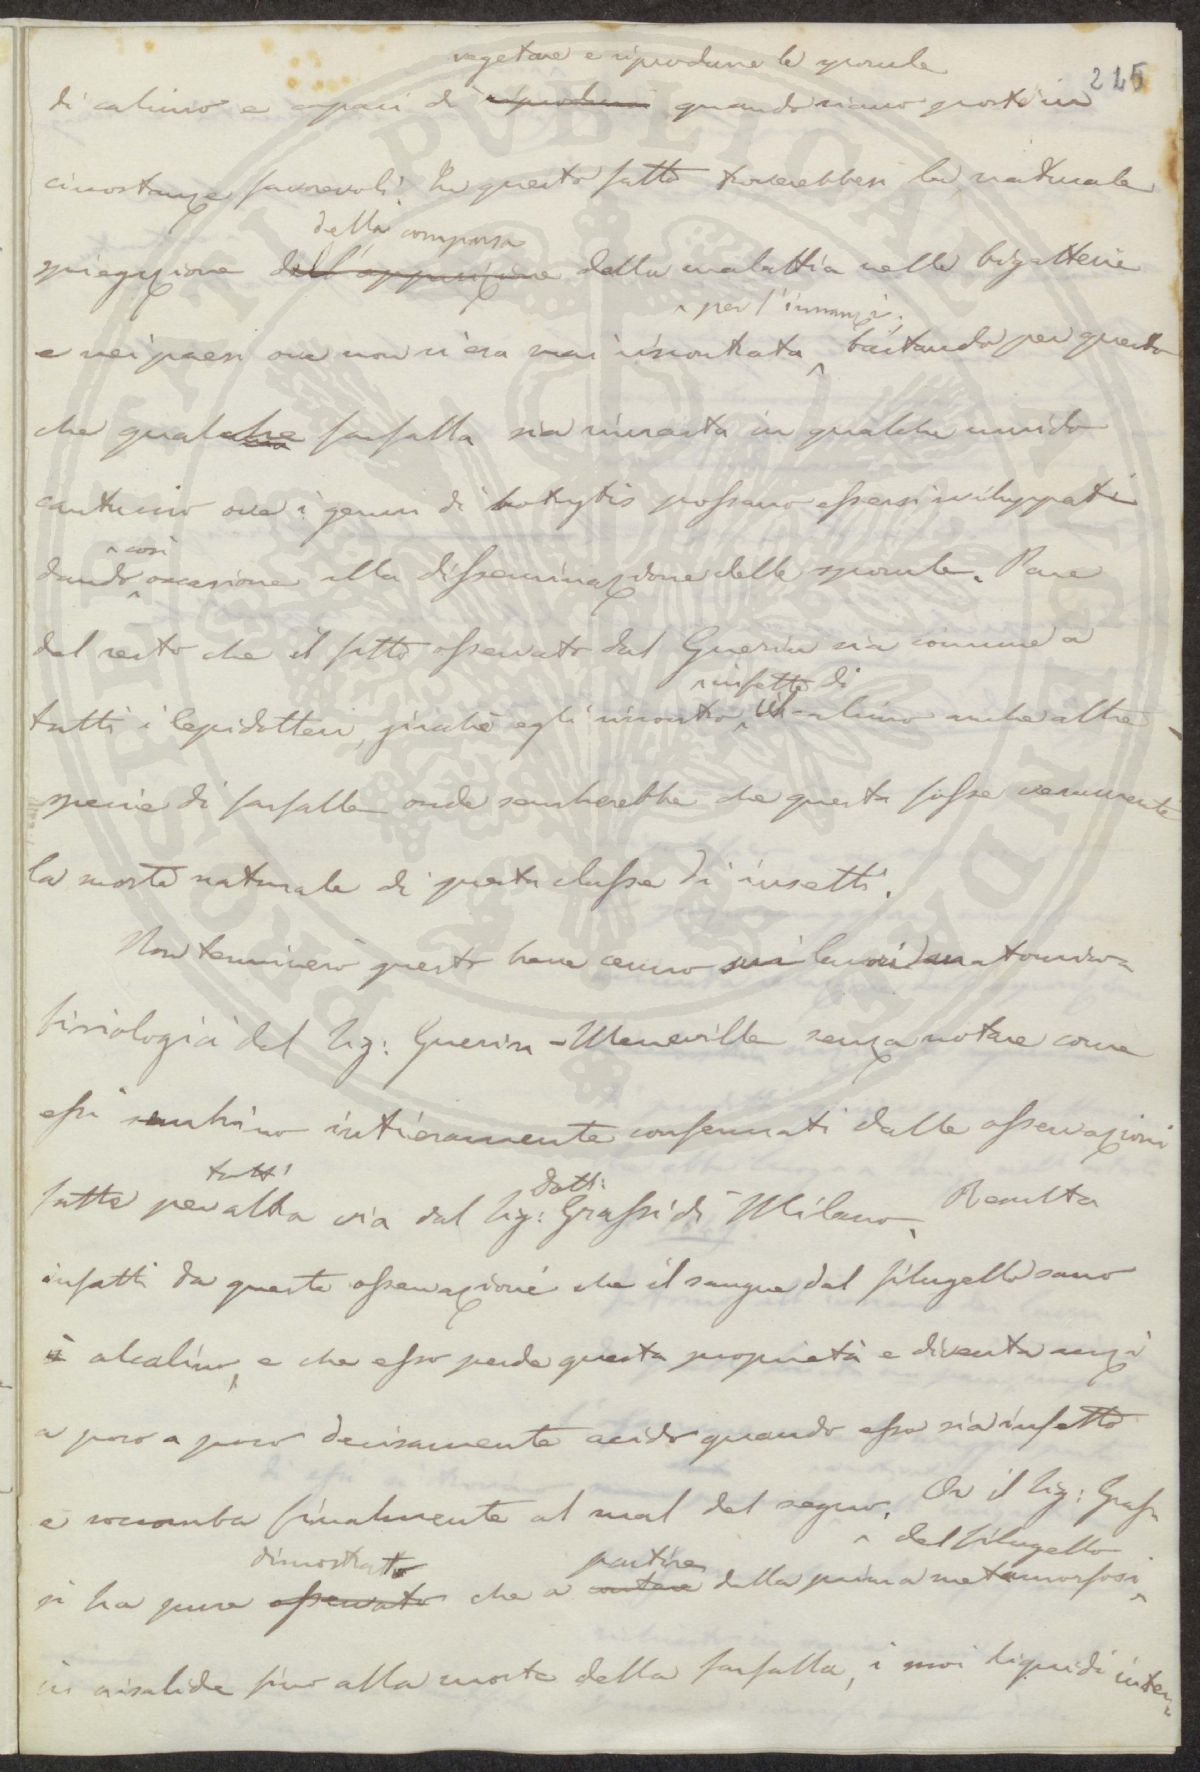 vegetare e riprodurre le sporule
215
di calcino e capaci di riprodursi quando siano poste in
circostanze favorevoli. In questo fatto troverebbesi la naturale
della comparsa
spiegazione dell'apparizione della malattia nelle bigattiere
per l'innanzi,
e nei paesi ove non si era mai riscontrata, bastando per questo
che qualche farfalla sia rimasta in qualche umido
cantuccio ove i germi di botrytis possano essersi sviluppati
così
dando occasione alla disseminazione delle sporule. Pare
del resto che il fatto osservato dal Guerin sia comune a
infette di
tutti i lepidotteri, giacchè egli riscontrò il calcino anche altre
specie di farfalle onde sembrerebbe che questa fosse veramente
la morte naturale di questa classe di insetti.
Non terminerò questo breve cenno sui lavori anatomico=
fisiologici del Sig: Guerin-Meneville senza notare come
essi sembrino intieramente confermati dalle osservazioni
tutt' dott:
fatte per altra via dal Sig: Grassi di Milano. Resulta
infatti da queste osservazioni che il sangue del filugello sano
è alcalino, e che esso perde questa proprietà e diventa anzi
a poco a poco decisamente acido quando esso sia infetto
e soccomba finalmente al mal del segno. Or il Sig: Gras=
dimostrato partire del filugello
si ha pure osservato che a contare dalla prima metamorfosi
in crisalide fino alla morte della farfalla, i suoi liquidi inter=